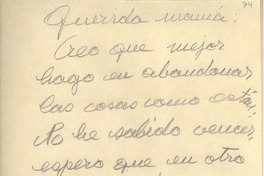 74
Querida mamá:
Creo que mejor
hago en abandonar
las cosas como están.
No he sabido vencer,
espero que en otro